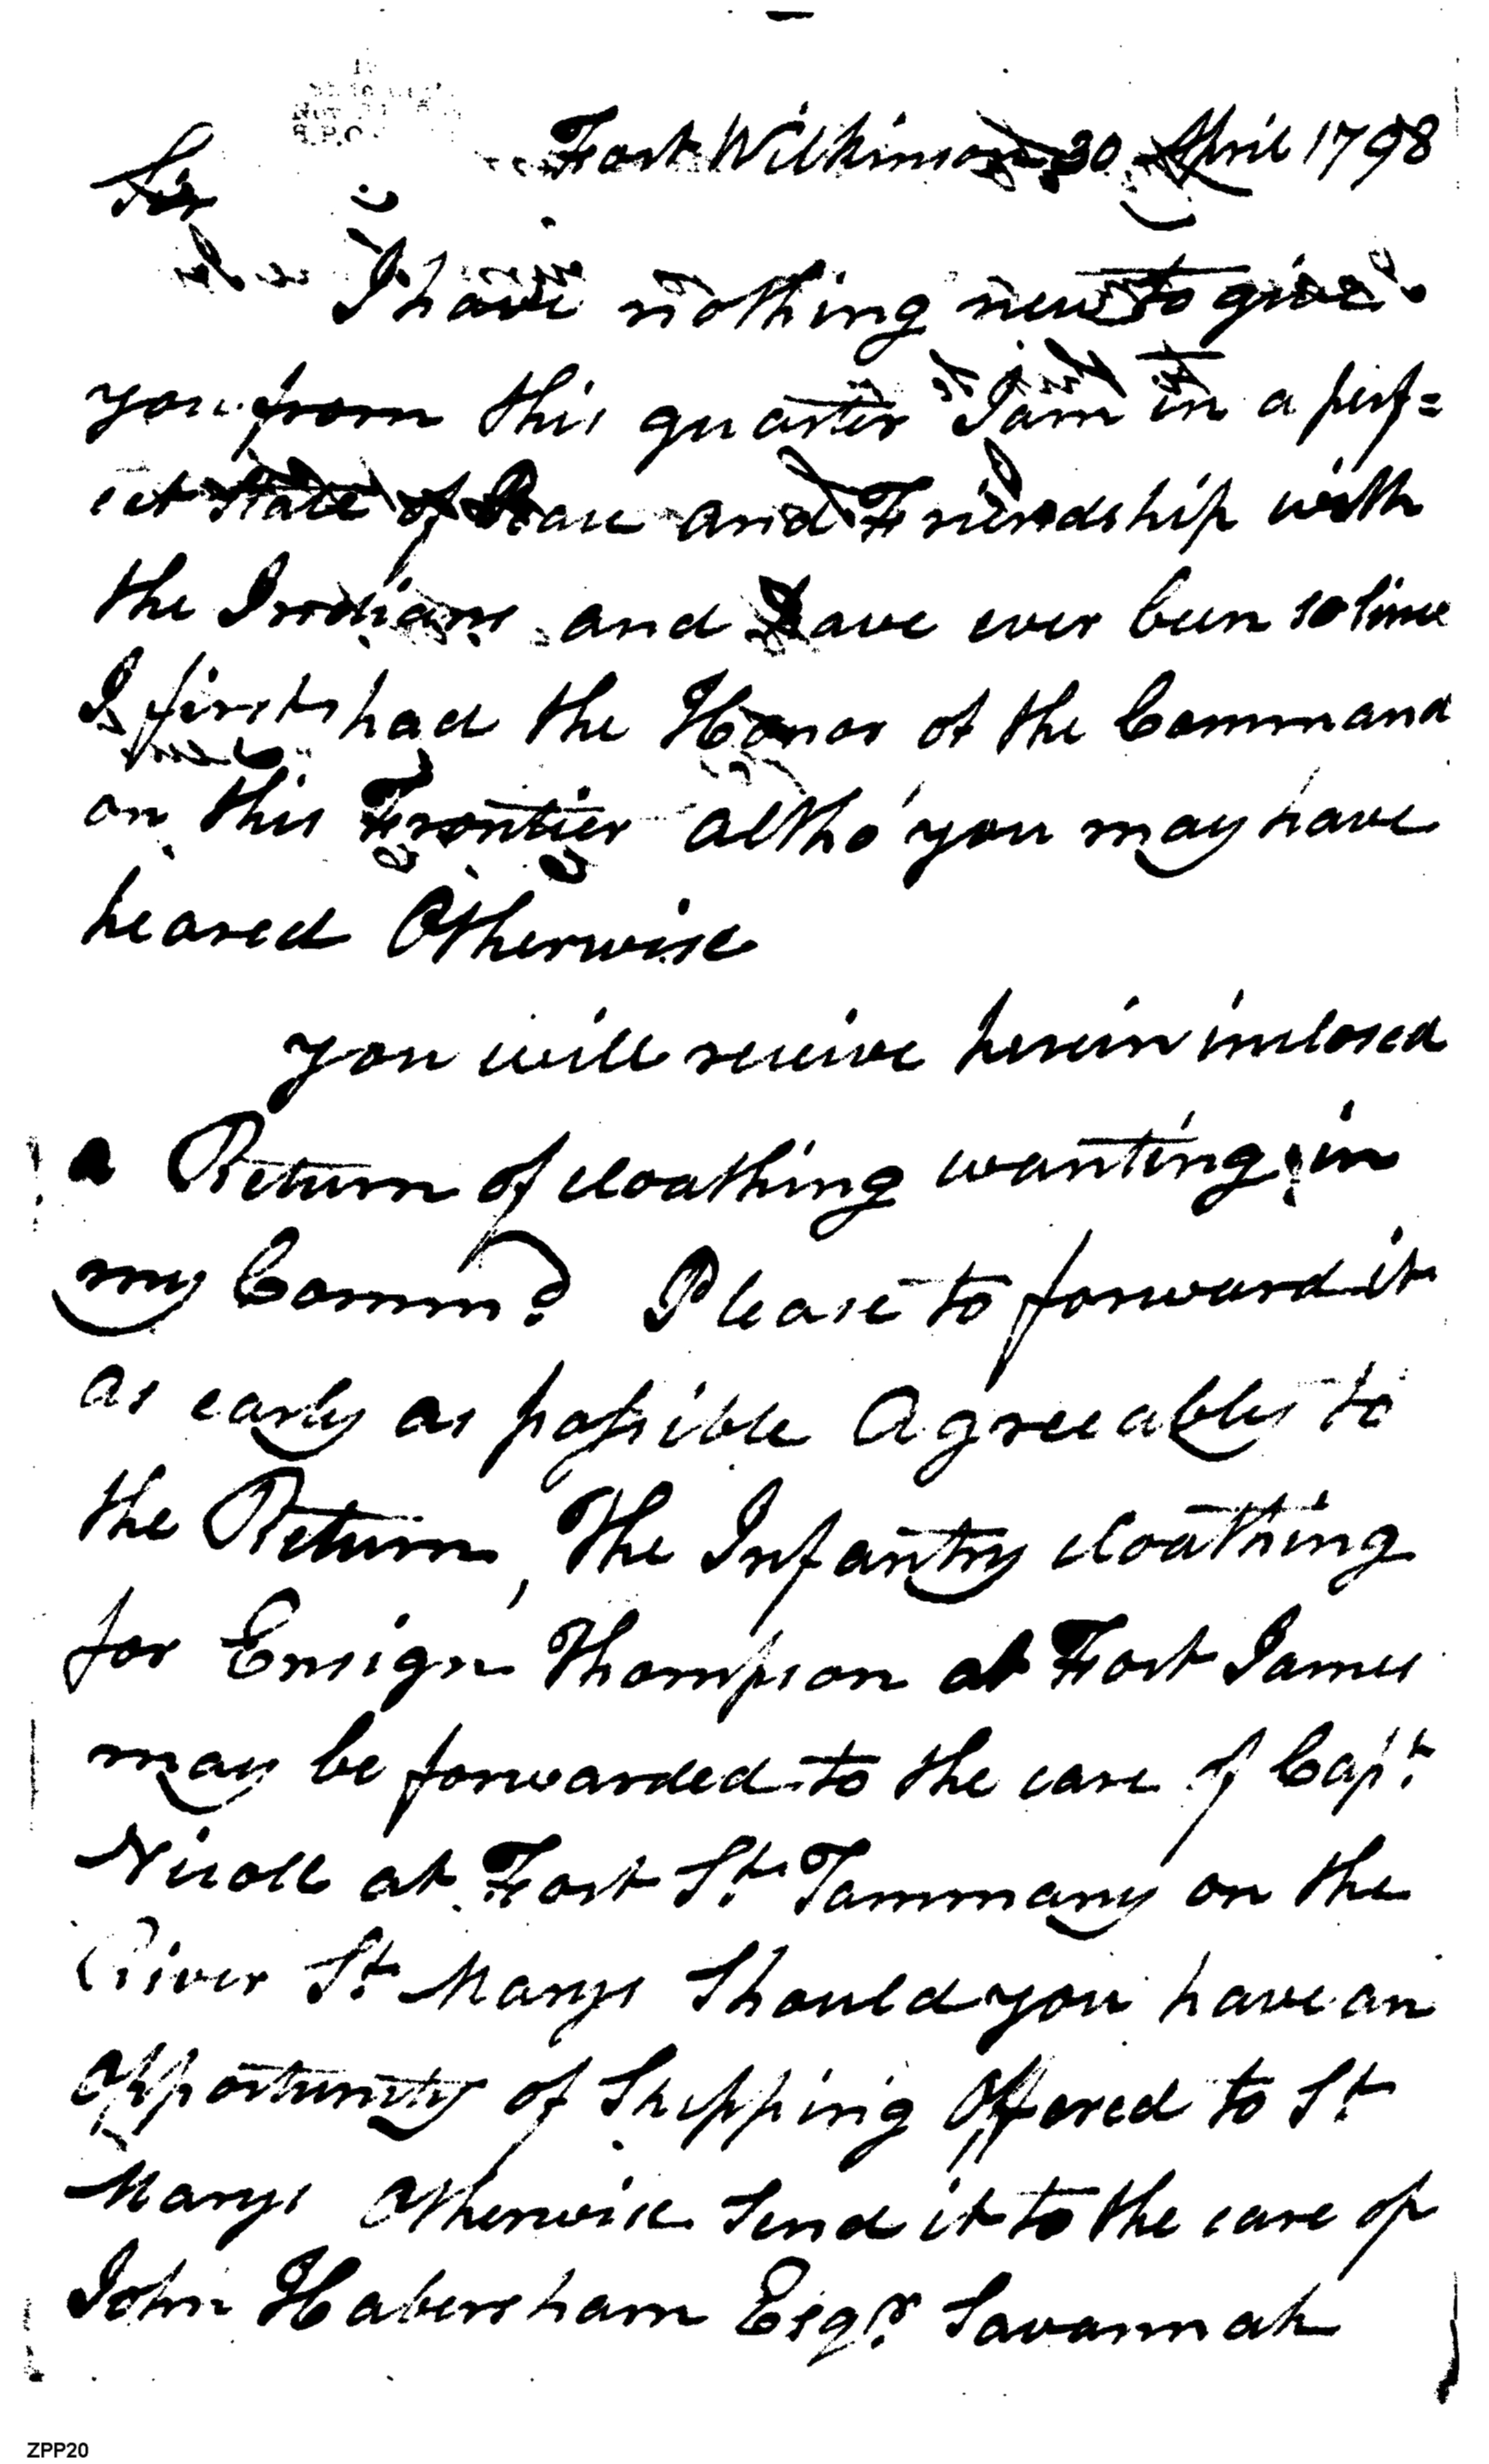 Fort Wilkinson 30 April 1798
Sir
I have nothing new to give
you from this quarter I am in a perf=
ect State of Peace and Friendship with
the Indians and have ever been so since
I first had the Honor of the Command
on this Frontier altho' you may have
heared Otherwise
you will receive herein inclosed
a Return of cloathing wanting in
my Commd. Please to forward it
as early as possible Agreeably to
the Return, The Infantry cloathing
for Ensign Thompson at Fort James
may be forwarded to the care of Capt.
Nicoll at Fort St. Tammany on the
River St. Marys Should you have an
opportunity of Shipping Offered to St.
Marys Otherwise Send it to the care of
John Habersham Esqr. Savannah
ZPP20